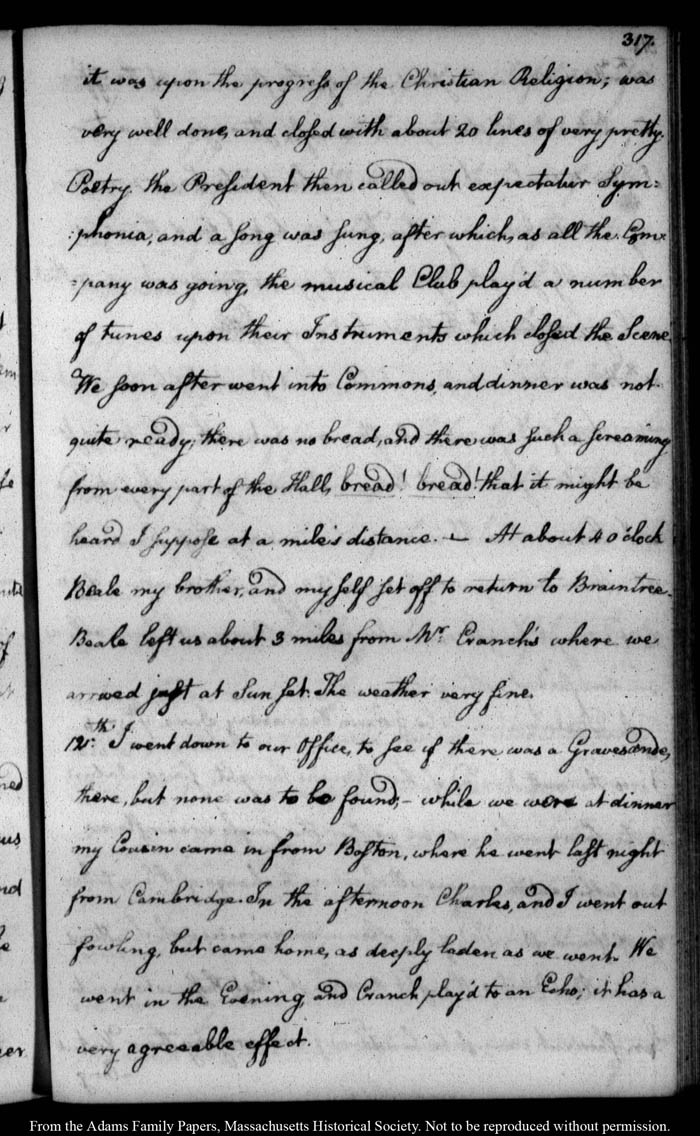 317.
it was upon the progress of the Christian Religion; was
very well done, and closed with about 20 lines of very pretty
Poetry. the President then called out expectatur Sym=
:phonia, and a song was sung, after which, as all the Com=
=pany was going, the musical Club play'd a number
of tunes upon their Instruments which closed the Scene.
We soon after went into Commons, and dinner was not
quite ready; there was no bread, and there was such a screaming
from every part of the Hall, bread! bread! that it might be
heard I suppose at a mile's distance. — At about 4 o'clock
Beale my brother, and myself set off to return to Braintree.
Beale left us about 3 miles from Mr. Cranch's where we
arrived just at Sun set. The weather very fine.
12th. I went down to our Office, to see if there was a Gravesande,
there, but none was to be found; – while we were at dinner
my Cousin came in from Boston, where he went last night
from Cambridge. In the afternoon Charles, and I went out
fowling, but came home, as deeply laden as we went. We
went in the Evening and Cranch play'd to an Echo; it has a
very agreeable effect.
From the Adams Family Papers, Massachusetts Historical Society. Not to be reproduced without permission.